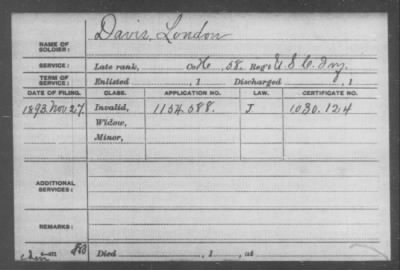 Davis, London
NAME OF SOLDIER:
SERVICE: Late rank, Co. H, 58. Reg't U.S.C. Inf.
TERM OF SERVICE: Enlisted , 1 Discharged , 1
DATE OF FILING. CLASS. APPLICATION NO. LAW. CERTIFICATE NO.
1893. Nov 27. Invalid, 1154.588. J 1030.124
Widow,
Minor,
ADDITIONAL SERVICES:
REMARKS:
Died , 1 , at